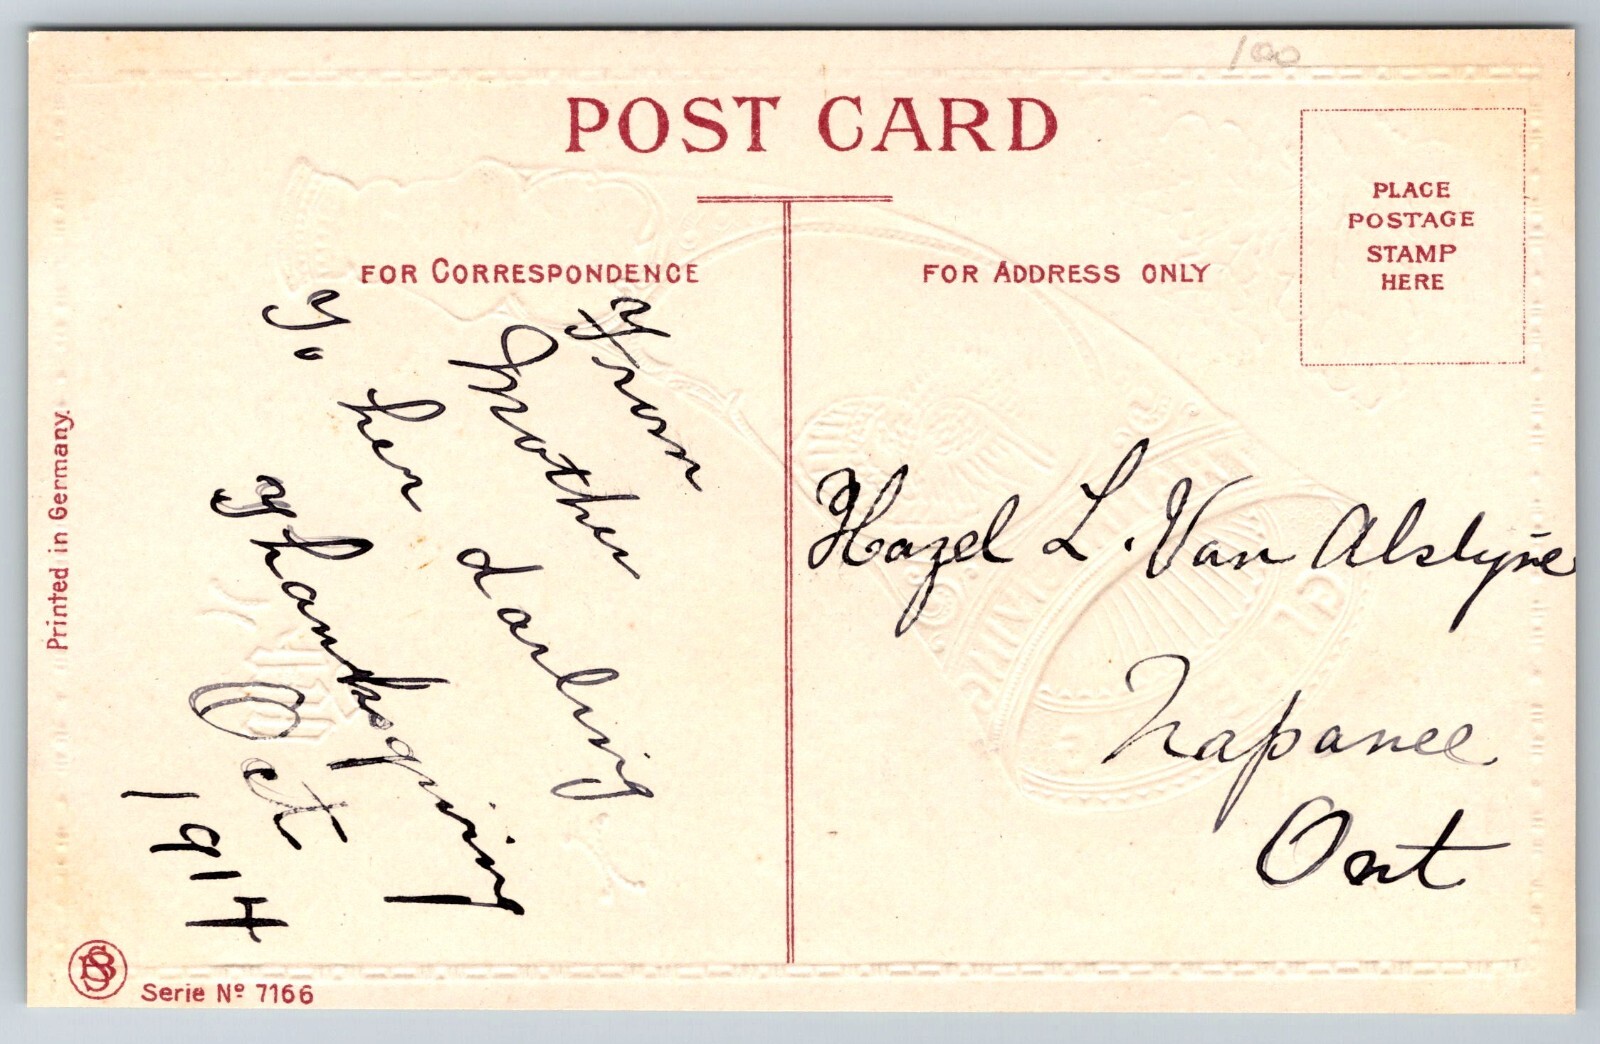 100
POST CARD
PLACE
POSTAGE
STAMP
HERE
FOR CORRESPONDENCE
FOR ADDRESS ONLY
From
Mother
To her darling
Thanksgiving
Oct
1914
Hazel L. Van Alstyne
Napanee
Ont
Printed in Germany.
BS
Serie Nº 7166